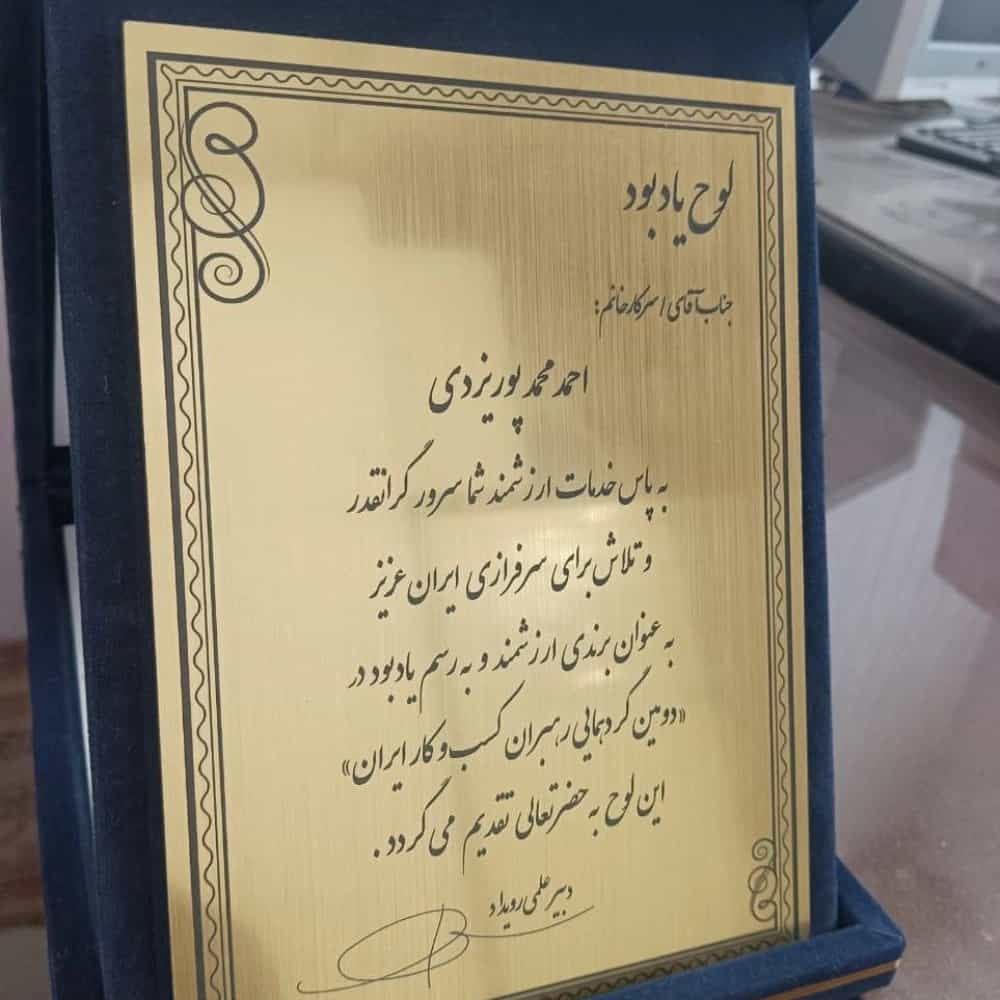 لوح یادبود
جناب آقای / سرکار خانم:
احمد محمد پور یزدی
به پاس خدمات ارزشمند شما سرور گرانقدر
و تلاش برای سرفرازی ایران عزیز
به عنوان برندی ارزشمند و به رسم یادبود در
«دومین گردهمایی رهبران کسب و کار ایران»
این لوح به حضرتعالی تقدیم می گردد .
دبیر علمی رویداد